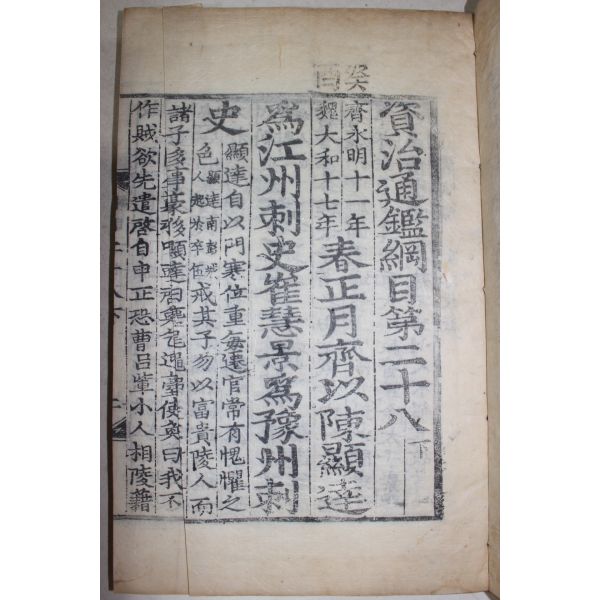 癸酉
資治通鑑綱目第二十八下
齊永明十一年
魏太和十七年
春正月齊以陳顯達
為江州刺史崔慧景為豫州刺
史
顯達自以門寒位重每遷官常有愧懼之
色
顯達南彭城
人起於卒伍
戒其子勿以富貴陵人而
諸子多事豪侈顯達奐曰我不
作賊欲先遣啓自申正恐曹呂輩小人相陵藉
二十八下